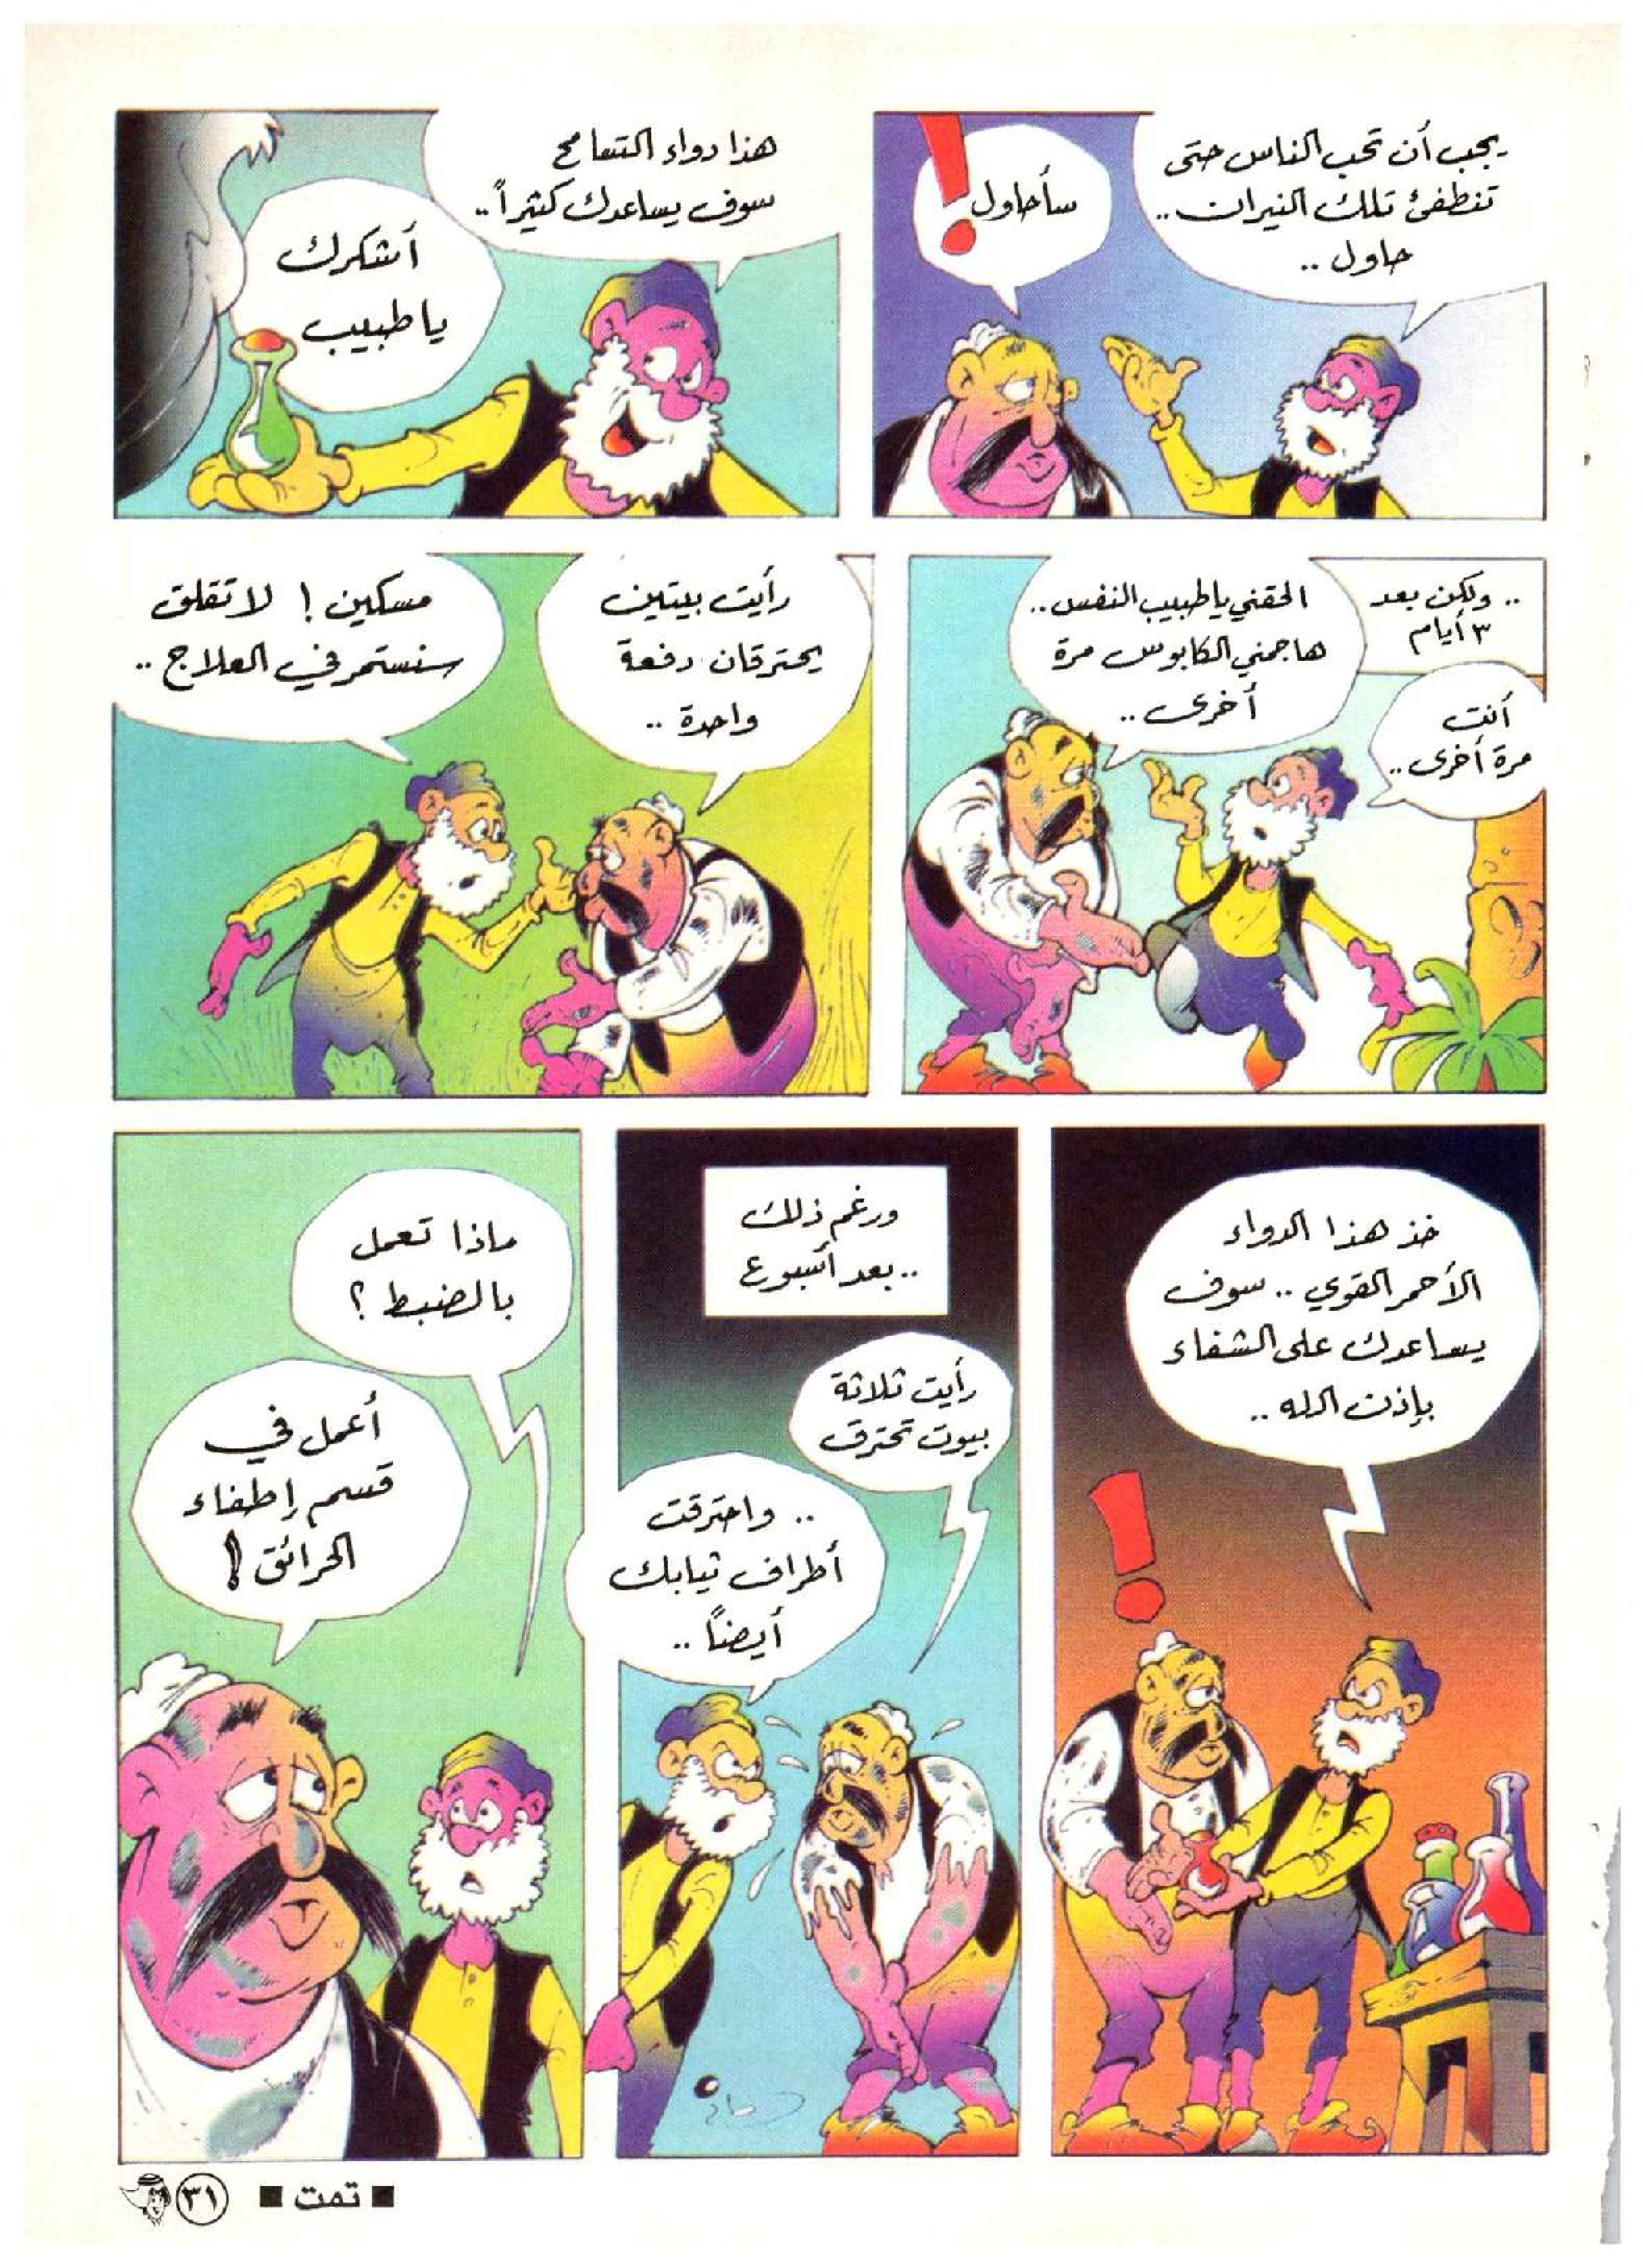 يجب أن تحب الناس حتى
تنطفئ تلك النيران..
حاول ..
سأحاول
هذا دواء التسامح
سوف يساعدك كثيراً..
أشكرك
يا طبيب
.. ولكن بعد
٣ أيام
أنت
مرة أخرى ..
الحقني يا طبيب النفس ..
هاجمني الكابوس مرة
أخرى ..
رأيت بيتين
يحترقان دفعة
واحدة ..
مسكين ! لا تقلق
سنستمر في العلاج ..
خذ هذا الدواء
الأحمر القوي .. سوف
يساعدك على الشفاء
بإذن الله ..
ورغم ذلك
.. بعد أسبوع
رأيت ثلاثة
بيوت تحترق
.. واحترقت
أطراف ثيابك
أيضاً ..
ماذا تعمل
بالضبط ؟
أعمل في
قسم إطفاء
الحرائق !
■ تمت ■
٣١